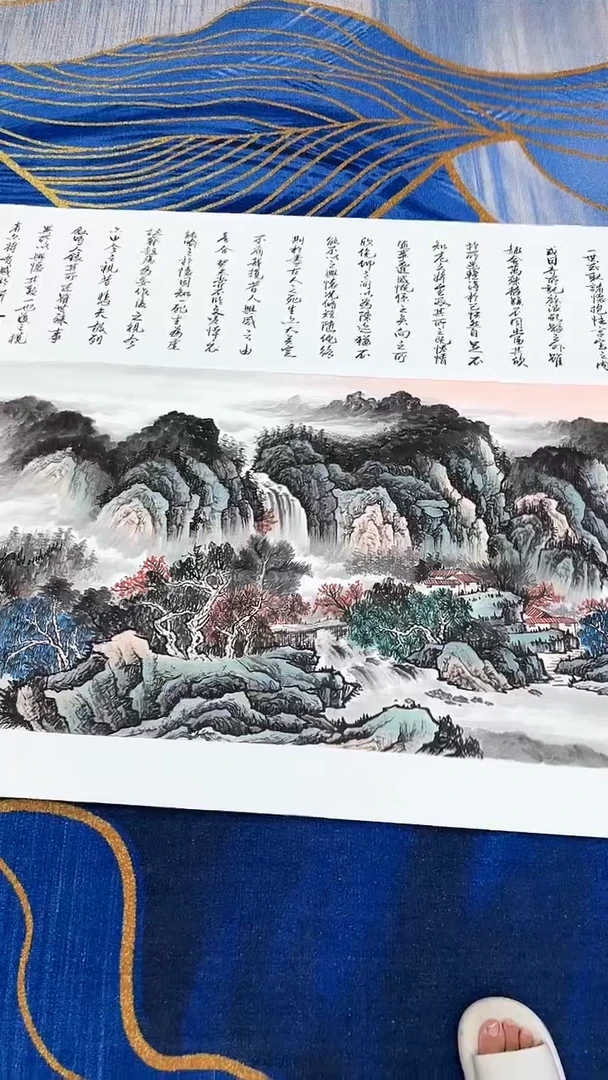 一世或取諸懷抱悟言一室之内
或因寄所託放浪形骸之外雖
趣舍萬殊静躁不同當其欣
於所遇暫得於己快然自足不
知老之將至及其所之既惓情
隨事遷感慨係之矣向之所
欣俛仰之間以為陳迹猶不
能不以之興懷況脩短隨化終
期於盡古人云死生亦大矣豈
不痛哉每攬昔人興感之由
若合一契未嘗不臨文嗟悼不
能喻之於懷固知一死生為虛
誕齊彭殤為妄作後之視今
亦由今之視昔悲夫故列
敘時人錄其所述雖世殊事
異所以興懷其致一也後之攬
者亦將有感於斯